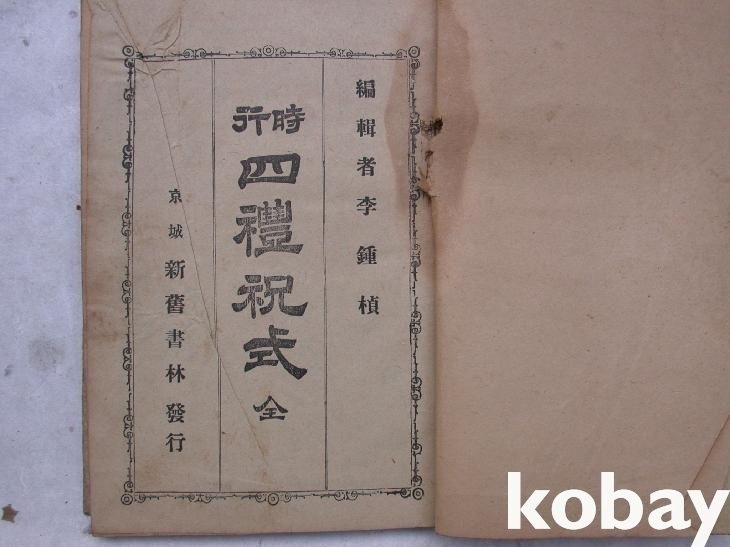 編輯者李鍾楨
時行
四禮祝式 全
京城 新舊書林發行
kobay